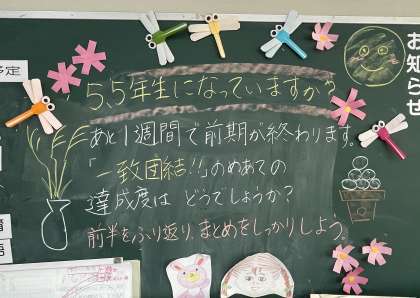 お知らせ
予定
5.5年生になっていますか?
あと1週間で前期が終わります。
「一致団結!!」のめあての
達成度は どうでしょうか?
前半をふり返り、まとめをしっかりしよう。
語